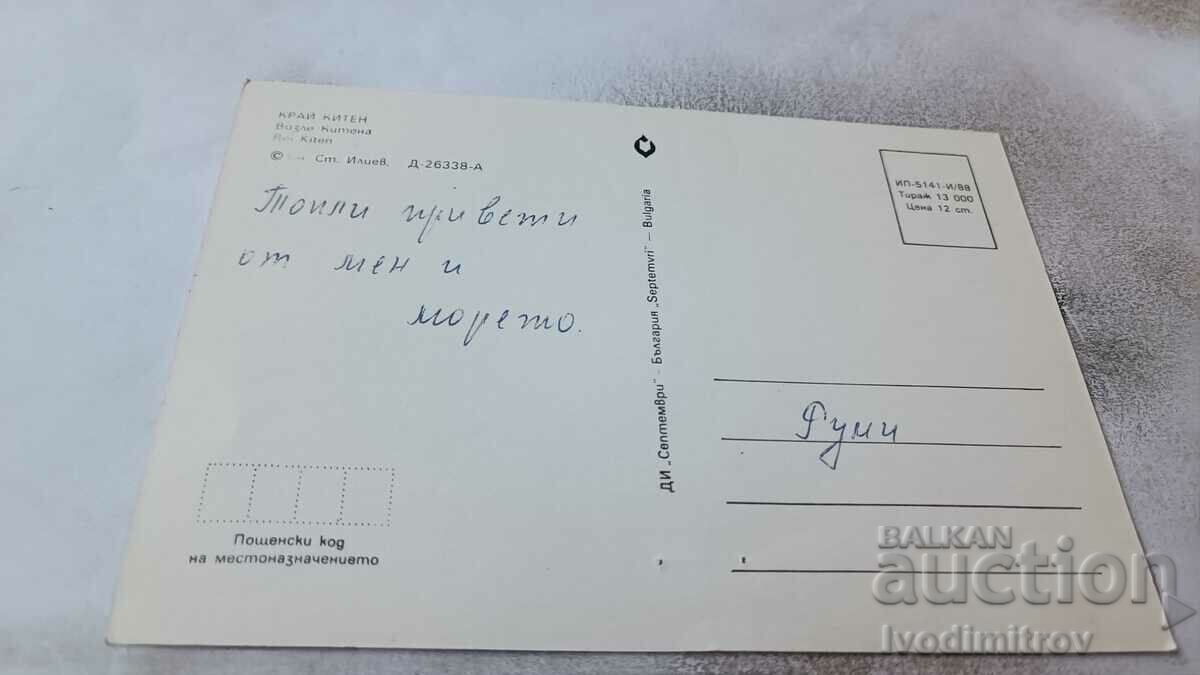 КРАЙ КИТЕН
Возле Китена
Bei Kiten
© Ст. Илиев. Д-26338-А
Топли привети
от мен и
морето.
Пощенски код
на местоназначението
ДИ „Септември" - България „Septemvri" - Bulgaria
ИП-5141-И/88
Тираж 13 000
Цена 12 ст.
Руми
BALKAN
auction
Ivodimitrov